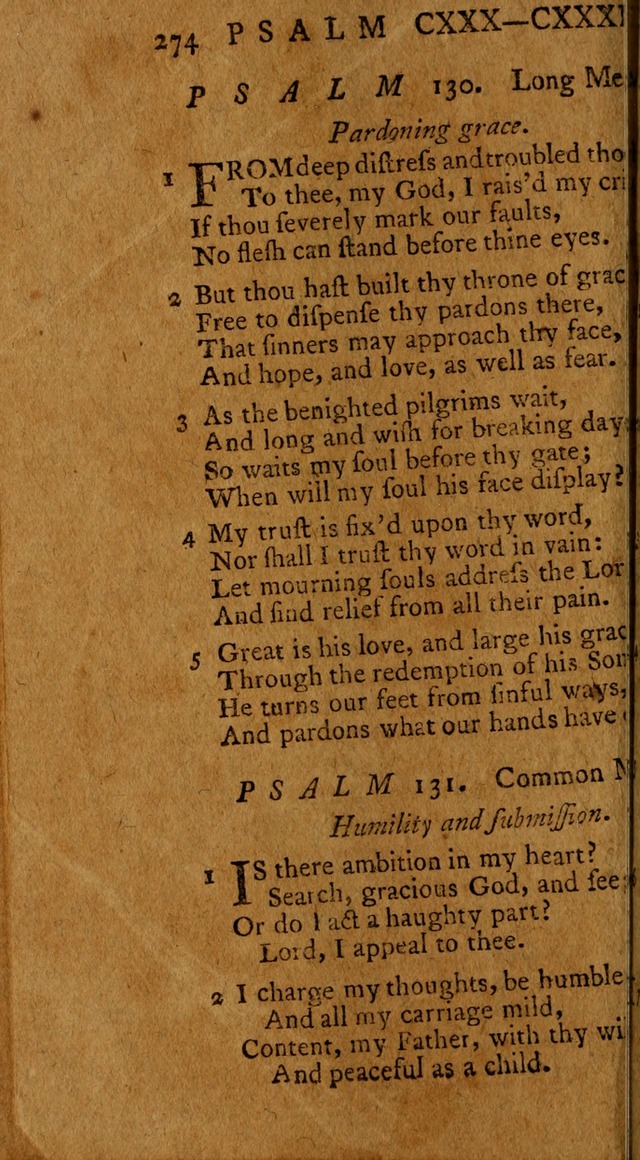 274 PSALM CXXX—CXXXI
PSALM 130. Long Me
Pardoning grace.
1 FROM deep diſtreſs and troubled tho
To thee, my God, I rais'd my cri
If thou ſeverely mark our faults,
No fleſh can ſtand before thine eyes.
2 But thou haſt built thy throne of grac
Free to diſpenſe thy pardons there,
That ſinners may approach thy face,
And hope, and love, as well as fear.
3 As the benighted pilgrims wait,
And long and wiſh for breaking day
So waits my ſoul before thy gate;
When will my ſoul his face diſplay?
4 My truſt is fix'd upon thy word,
Nor ſhall I truſt thy word in vain:
Let mourning ſouls addreſs the Lor
And find relief from all their pain.
5 Great is his love, and large his grac
Through the redemption of his Son
He turns our feet from ſinful ways,
And pardons what our hands have
PSALM 131. Common M
Humility and ſubmiſſion.
1 IS there ambition in my heart?
Search, gracious God, and ſee
Or do I act a haughty part?
Lord, I appeal to thee.
2 I charge my thoughts, be humble
And all my carriage mild,
Content, my Father, with thy wi
And peaceful as a child.